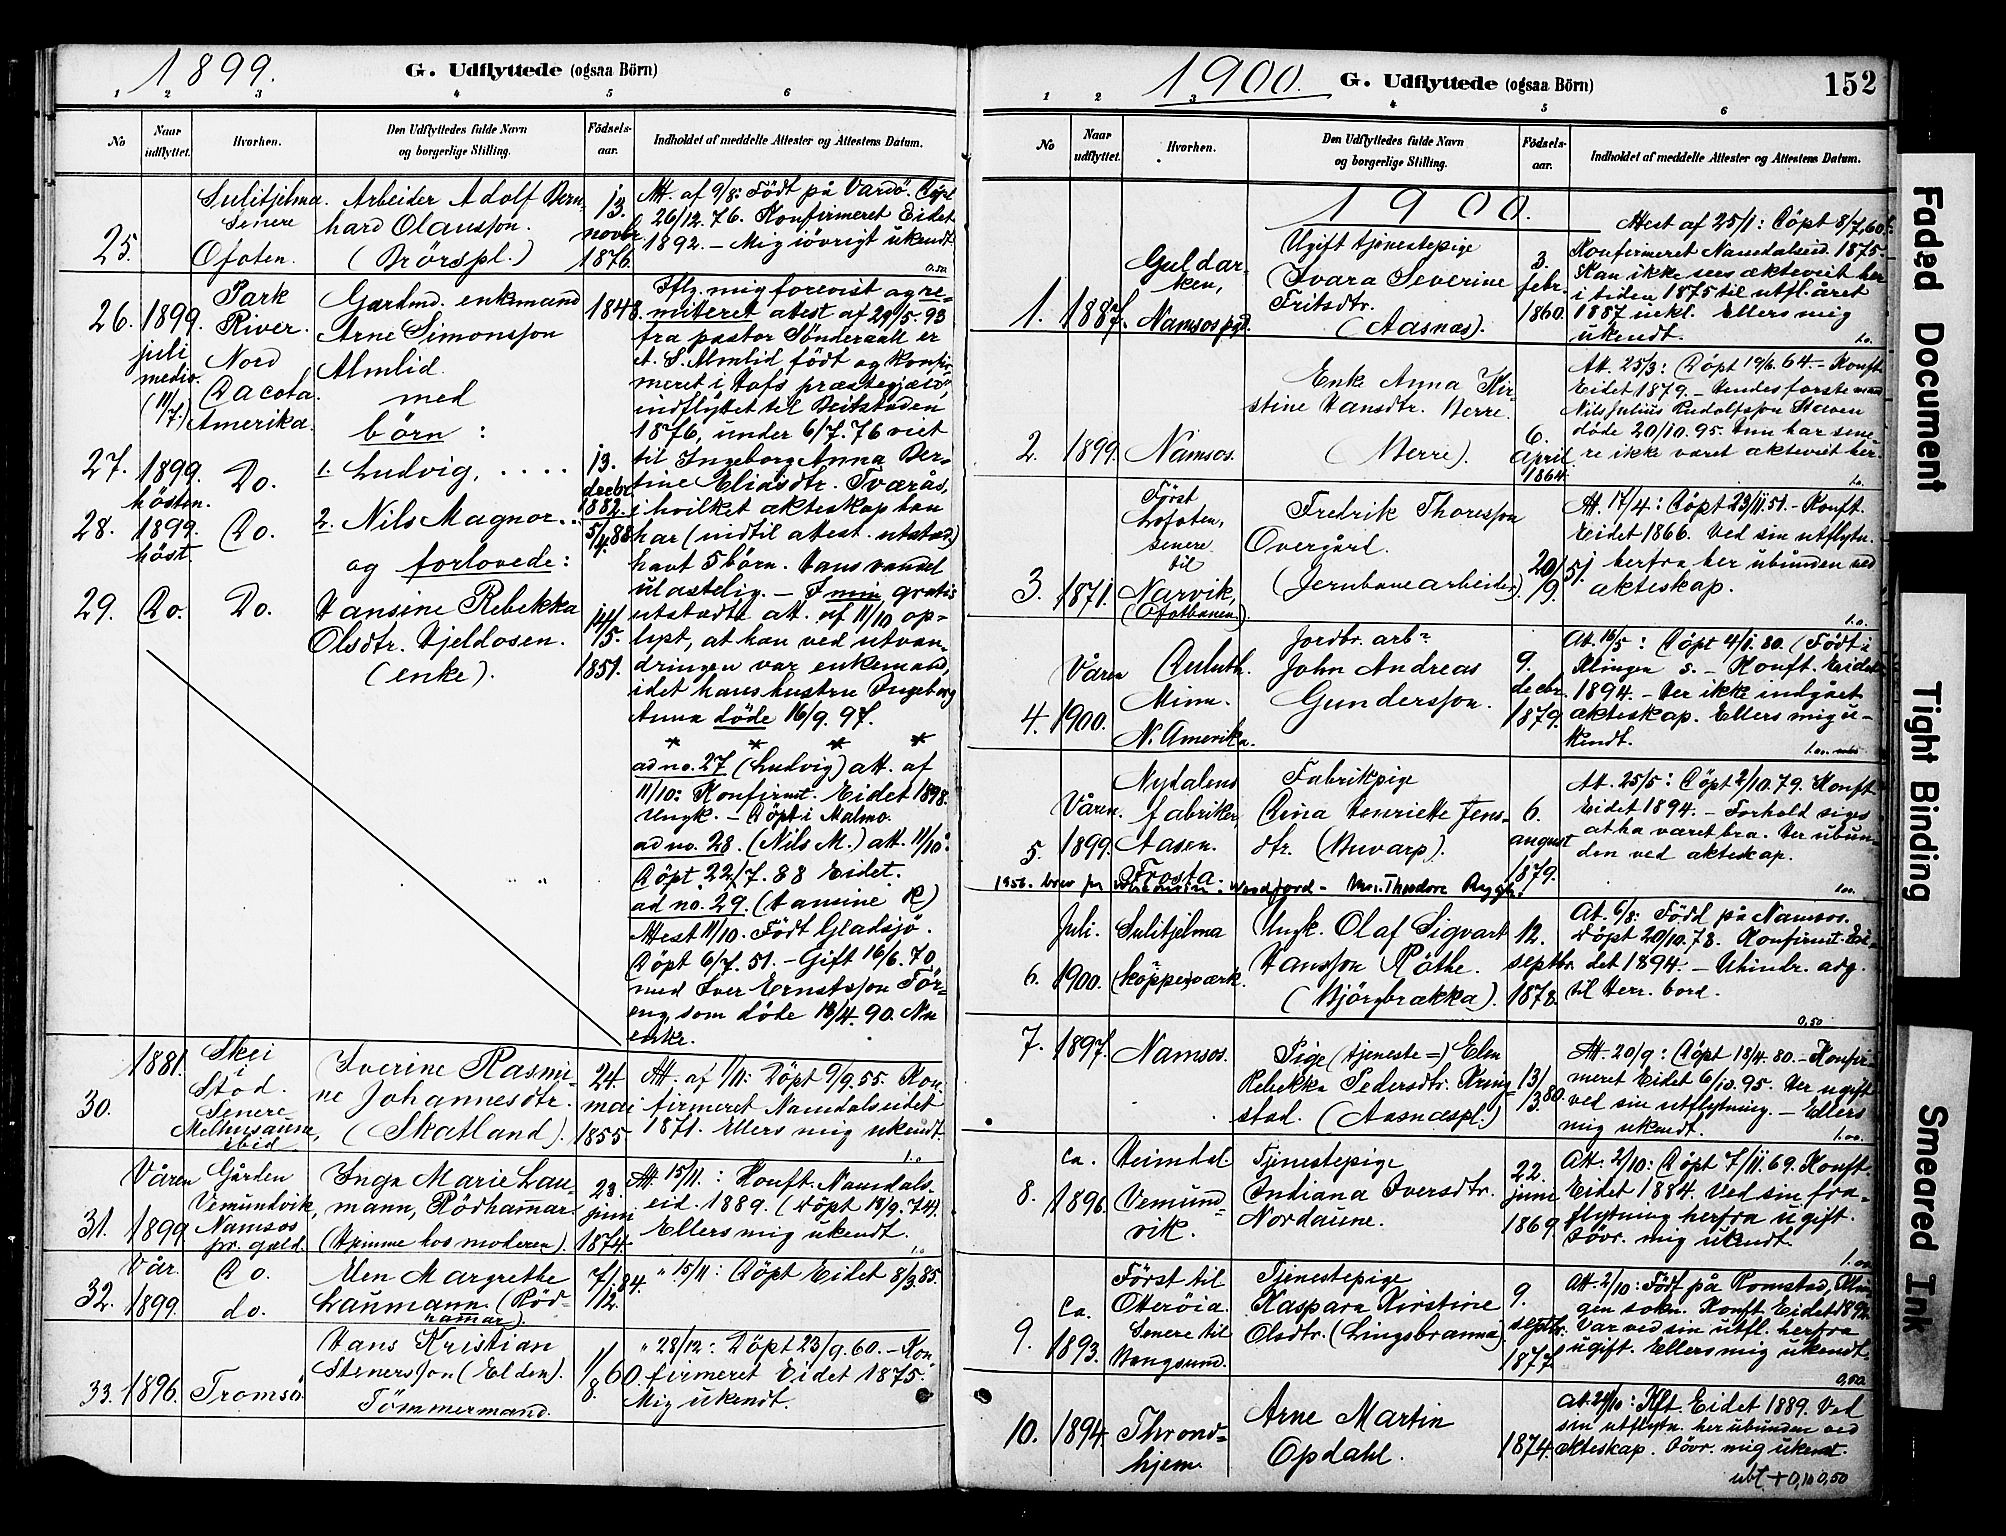 1899.
G. Udflyttede (ogsaa Börn)
1 2 3 4 5 6
No
Naar udflyttet.
Hvorhen.
Den Udflyttedes fulde Navn
og borgerlige Stilling.
Födsels-
aar.
Indholdet af meddelte Attester og Attestens Datum.
25.
Sulitjelma.
Senere
Ofoten.
Arbeider Adolf Bern-
hard Olausson.
(Brörspl.)
13.
novbr.
1876.
Att. af 9/8: Födt på Vardö. Döpt
26/12. 76. Konfirmeret Eidet
1892. – Mig iövrigt ukendt.
0.50
26.
1899.
juli
medio.
(11/7.)
Park
River.
Nord
Dacota.
Amerika.
Gaardmd. enkemand
Arne Simonsson
Almlid.
med
börn :
1848.
Iflg. mig forevist og re-
mitteret atest af 29/5. 93
fra pastor Sönderaall er
A. S. Almlid födt og konfir-
meret i Hofs præstegjæld
indflyttet til Beitstaden
1876, under 6/7. 76 viet
til Ingeborg Anna Ber-
tine Eliasdtr. Tværås,
i hvilket ækteskap han
har (indtil attest. utstæd.)
havt 5 börn. Hans vandel
ulastelig. – I min gratis
utstædte att. af 11/10 op-
lyst, at han ved utvan-
dringen var enkemand,
idet hans hustru Ingeborg
Anna döde 16/9. 97.
27.
1899.
hösten.
Do.
1. Ludvig, . . . .
13.
decbr.
1882.
28.
1899.
höst.
Do.
2. Nils Magnor. . .
5/4. 88
og forlovede :
29.
Do.
Do.
Hansine Rebekka
Olsdtr. Hjeldosen.
(enke).
14/5.
1851.
* * * *
ad no. 27 (Ludvig) att. af
11/10: Konfirmt. Eidet 1898.
Ungk. – Döpt i Malmo.
ad no. 28. (Nils M.) att. 11/10:
Döpt 22/7. 88 Eidet.
ad no. 29. (Hansine R)
Attest 11/10. Födt Gladsjö.
Döpt 6/7. 51. – Gift 16/6. 70
med Iver Ernstsson För-
eng, som döde 18/4. 90. Nu
enke.
30.
1881.
Skei
i
Stöd.
Senere
Melhusaune,
ibid.
Iverine Rasmi-
ne Johannesdtr.
(Skatland).
24.
mai
1855
Att. af 1/11: Döpt 9/9. 55. Kon-
firmeret Namdalseidet
1871. Ellers mig ukendt.
1.0
31.
Våren
1899
Gården
Vemundvik,
Namsos
pr. gjæld.
Inga Marie Lau-
mann, Rödhamar
(Hjemme hos moderen).
23.
juni
1874.
Att. 15/11. : Konft. Namdals-
eid. 1889. (Döpt 13/9. 74).
Ellers mig ukendt.
1.0
32.
Vår.
1899.
Do.
do.
Elen Margrethe
Laumann. (Röd-
hamar).
7/12. 84.
" 15/11 : Döpt Eidet 8/3 85.
33.
1896.
Tromsö
Hans Kristian
Stenersson (Elden).
Tömmermand.
1/8. 60.
" 28/12 : Döpt 23/9. 60. – Kon-
firmeret Eidet 1875.
Mig ukendt.
1900.
G. Udflyttede (ogsaa Börn)
152
1 2 3 4 5 6
No
Naar
udflyttet.
Hvorhen.
Den Udflyttedes fulde Navn
og borgerlige Stilling.
Födsels-
aar.
Indholdet af meddelte Attester og Attestens Datum.
1900.
1.
1887.
Guldar-
ken,
Namsos pgd.
Ugift tjenestepige
Ivara Severine
Fritsdtr.
(Aasnæs).
3.
febr.
1860.
Attest af 25/1: Döpt 8/7. 60.
Konfirmeret Namdalseid. 1875.
Kan ikke sees ækteviet her
i tiden 1875 til utfl. året
1887 inkl. Ellers mig
ukendt.
1.0
2.
1899.
Namsos.
Enk. Anna Kir-
stine Hansdtr. Berre.
(Berre).
6.
April
1864.
Att. 25/3 : Döpt 19/6. 64. – Konft.
Eidet 1879. – Hendes förste mand
Nils Julius Rudolfsson Staven
döde 20/10. 95. Hun har sene-
re ikke været ækteviet her.
1.0.
3.
1871.
Först
Lofoten,
senere
til
Narvik,
(Ofotbanen).
Fredrik Thoresson
Overgård.
(Jernbanearbeider)
20/9. 51.
Att. 17/4 : Döpt 23/11. 51. – Konft.
Eidet 1866. Ved sin utflytn.
herfra her ubunden ved
ækteskap.
1.0.
4.
Våren
1900.
Duluth.
Minn.
N. Amerika.
Jordbr. arb.
John Andreas
Gundersson.
9.
decbr.
1879.
At. 16/5 : Döpt 4/1. 80. (Födt i
Klingen s. – Konft. Eidet
1894. – Her ikke indgået
ækteskap. Ellers mig u-
kendt.
5.
Våren.
1899.
Nydalens
fabriker,
Aasen.
Frosta.
Fabrikpige
Dina Henriette Jens-
dtr. (Buvarp).
6.
august
1879.
Att. 25/5 : Döpt 2/10. 79. Konft.
Eidet 1894. – Forhold siges
at ha været bra. Her ubun-
den ved ækteskap.
1.00.
Mrs. Theodore Rygh.
6.
Juli.
1900.
Sulitjelma
kopperværk.
Ungk. Olaf Sigvart
Hansson Röthe.
(Björgbrækka).
12.
septbr.
1878.
At. 6/8 : Född på Namsos.
Döpt 20/10. 78. Konfirmt. Ei-
det 1894. – Uhindr. adg.
til Herr. bord.
0,50
7.
1897.
Namsos.
Pige (tjeneste =) Elen
Rebekka Pedersdtr. Kring-
stad. (Aasnæspl.)
13/3. 80.
Att. 20/9 : Döpt 18/4. 80. – Konfir-
meret Eidet 6/10. 95. Her ugift
ved sin utflytning. – Ellers
mig ukendt.
1.00.
8.
ca.
1896.
Heimdal
Vemund-
vik.
Tjenestepige
Indiana Iversdtr.
Nordaune.
22.
juni
1869.
Att. 2/10 : Döpt 7/11. 69. Konft.
Eidet 1884. Ved sin fra-
flytning herfra ugift.
Iövr. mig ukendt.
1.00
9.
Ca.
1893.
Först til
Otteröia.
Senere til
Bangsund.
Tjenestepige
Kaspara Kirstine
Olsdtr. (Lingsbranna).
9.
septbr.
1877.
Att. 2/10 : Födt på Romstad, Klin-
gen sokn. Konft. Eidet 1892.
Var ved sin utfl. herfra
ugift. Ellers mig ukendt.
0,50
10.
1894.
Thrond-
hjem.
Arne Martin
Opdahl.
1874.
At. 24/10 : Kft. Eidet 1889. Ved
sin utflytn. her ubunden ved
ækteskap. Iövr. mig ukendt.
ubt + 0,10 0,50
Faded Document
Tight Binding
Smeared Ink